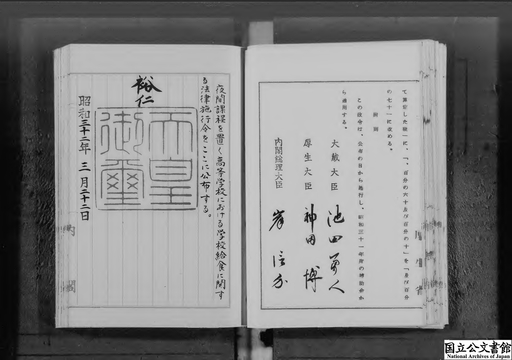 て算定した額」に、「、百分の六十及び百分の十」を「及び百分
の七十」に改める。
附則
この政令は、公布の日から施行し、昭和三十一年度の補助金か
ら適用する。
大蔵大臣 池田勇人
厚生大臣 神田博
内閣総理大臣 岸信介
夜間課程を置く高等学校における学校給食に関す
る法律施行令をここに公布する。
裕仁
天皇
御璽
昭和三十二年三月二十二日
内閣
国立公文書館
National Archives of Japan